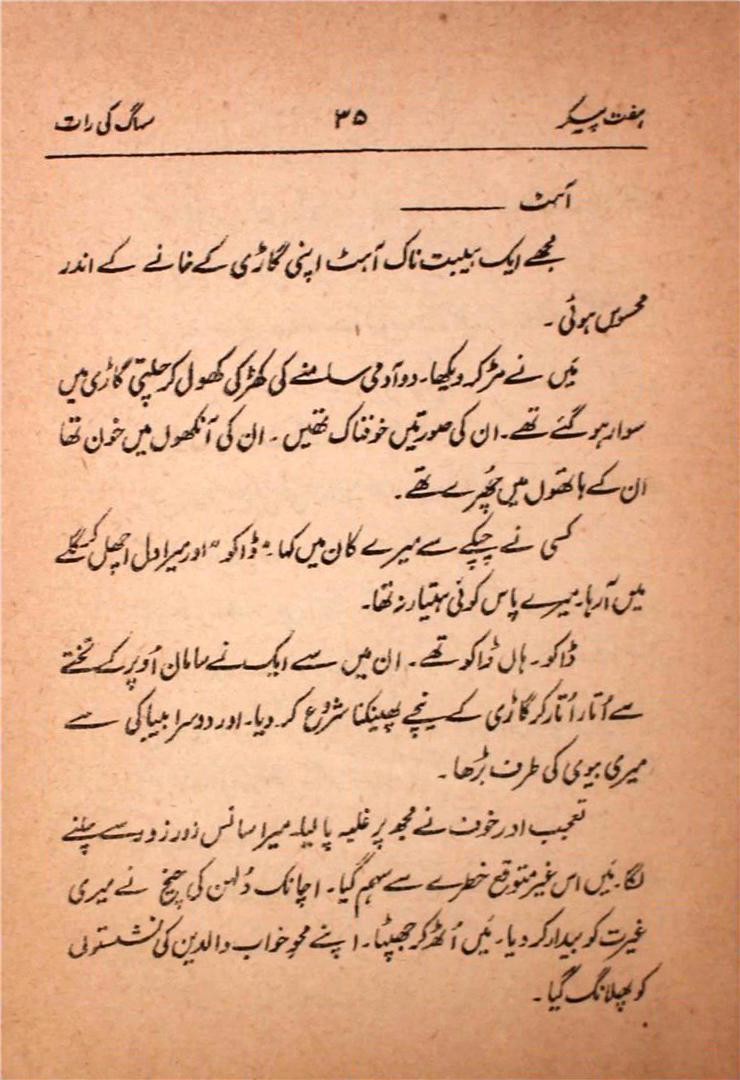 ہفت پیکر ۳۵ سہاگ کی رات
آہٹ ـــــــــــ
مجھے ایک ہیبت ناک آہٹ اپنی گاڑی کے خانے کے اندر
محسوس ہوئی ۔
مَیں نے مڑ کر دیکھا۔ دو آدمی سامنے کی کھڑکی کھول کر چلتی گاڑی میں
سوار ہو گئے تھے۔ ان کی صورتیں خوفناک تھیں ۔ ان کی آنکھوں میں خون تھا
ان کے ہاتھوں میں چُھرے تھے ۔
کسی نے چپکے سے میرے کان میں کہا۔ "ڈاکو" اور میرا دل اچھل کر گلے
میں آرہا۔ میرے پاس کوئی ہتیار نہ تھا۔
ڈاکو۔ ہاں ڈاکو تھے ۔ ان میں سے ایک نے سامان اُوپر کے تختے
سے اُتار اُتار کر گاڑی کے نیچے پھینکنا شروع کر دیا۔ اور دوسرا بیباکی سے
میری بیوی کی طرف بڑھا ۔
تعجب اور خوف نے مجھ پر غلبہ پا لیا۔ میرا سانس زور زور سے چلنے
لگا۔ مَیں اس غیر متوقع خطرے سے سہم گیا۔ اچانک دُلہن کی چیخ نے میری
غیرت کو بیدار کر دیا۔ مَیں اُٹھ کر جھپٹا۔ اپنے محوِ خواب والدین کی نشستوں
کو پھلانگ گیا ۔